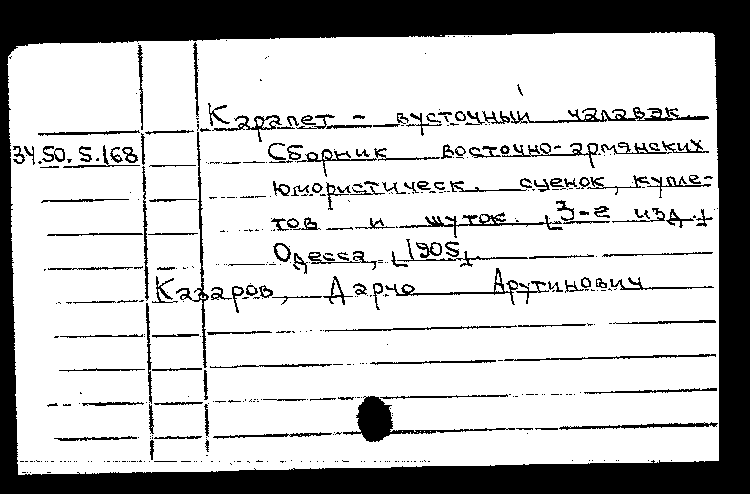 Карапет - вусточный чалавэк.
34.50.5.168
Сборник восточно-армянских
юмористическ. сценок, купле-
тов и шуток. [3-е изд.]
Одесса, [1905].
Казаров, Дарчо Арутинович